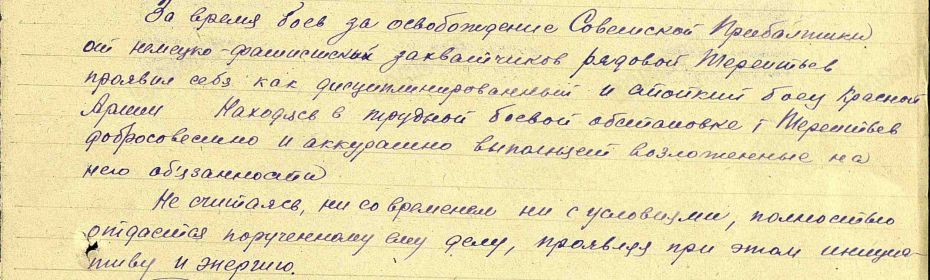 За время боев за освобождение Советской Прибалтики
от немецко-фашистских захватчиков рядовой Терентьев
проявил себя как дисциплинированный и стойкий боец Красной
Армии Находясь в трудной боевой обстановке т Терентьев
добросовестно и аккуратно выполняет возложенные на
него обязанности
Не считаясь, ни со временем ни с условиями, полностью
отдается порученному ему делу, проявляя при этом инициа-
тиву и энергию.